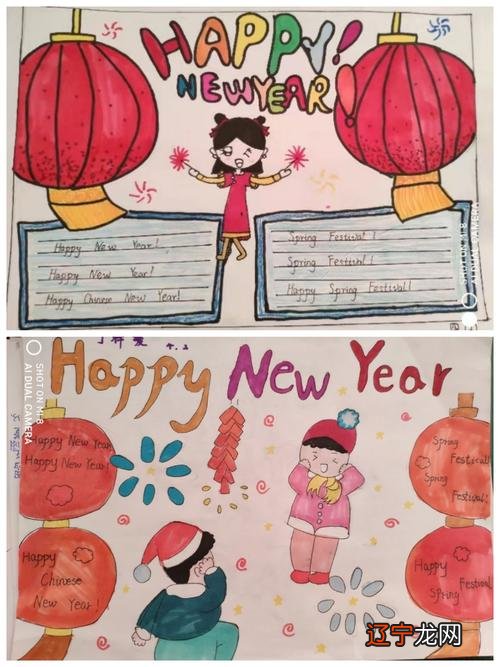 HAPPY!
NEW YEAR
Happy New Year!
Happy New Year!
Happy Chinese New Year!
Spring Festival!
Spring Festival!
Happy Spring Festival!
SHOT ON MI 8
AI DUAL CAMERA
Happy New Year
Happy New Year
Happy New Year!
Happy
Chinese
New Year!
Spring
Festival!
Spring
Festival!
Happy
Spring Festival
辽宁龙网